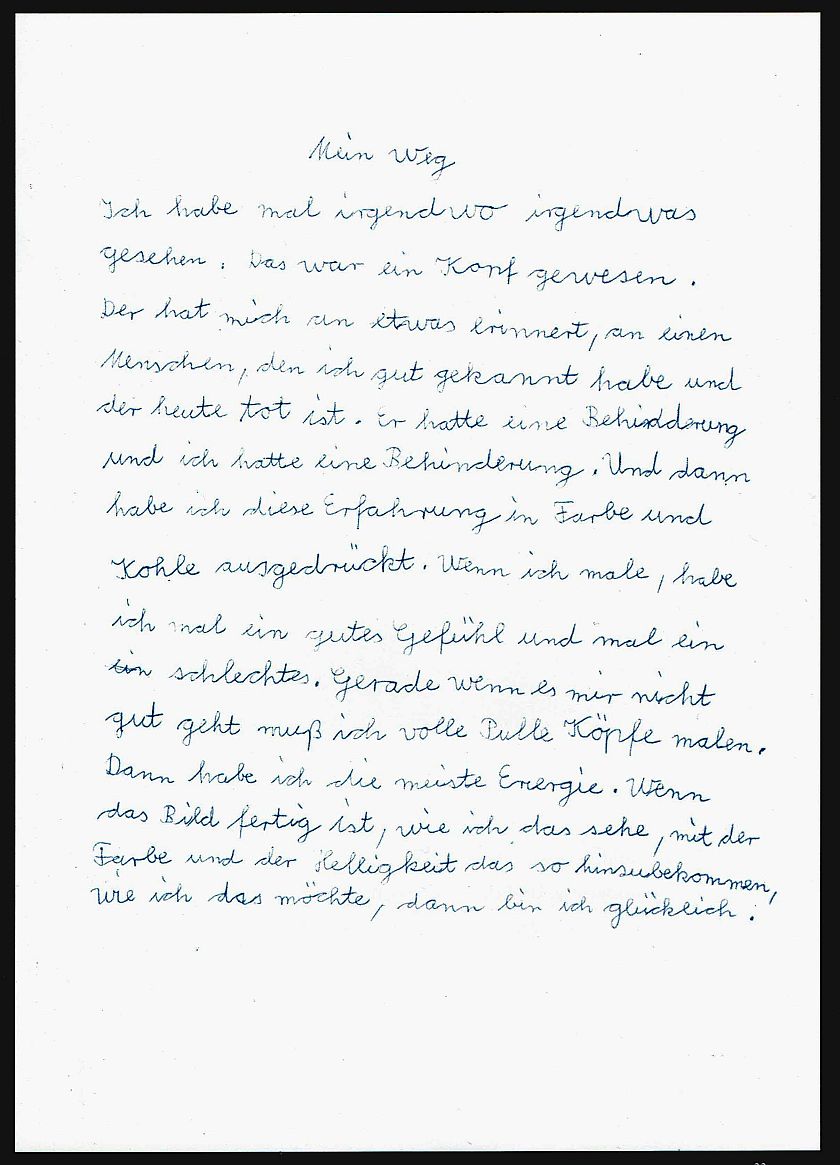 Mein Weg
Ich habe mal irgendwo irgendwas
gesehen. Das war ein Kopf gewesen.
Der hat mich an etwas erinnert, an einen
Menschen, den ich gut gekannt habe und
der heute tot ist. Er hatte eine Behindderung
und ich hatte eine Behinderung. Und dann
habe ich diese Erfahrung in Farbe und
Kohle ausgedrückt. Wenn ich male, habe
ich mal ein gutes Gefühl und mal ein
ein schlechtes. Gerade wenn es mir nicht
gut geht muß ich volle Pulle Köpfe malen.
Dann habe ich die meiste Energie. Wenn
das Bild fertig ist, wie ich das sehe, mit der
Farbe und der Helligkeit das so hinzubekommen,
wie ich das möchte, dann bin ich glücklich.